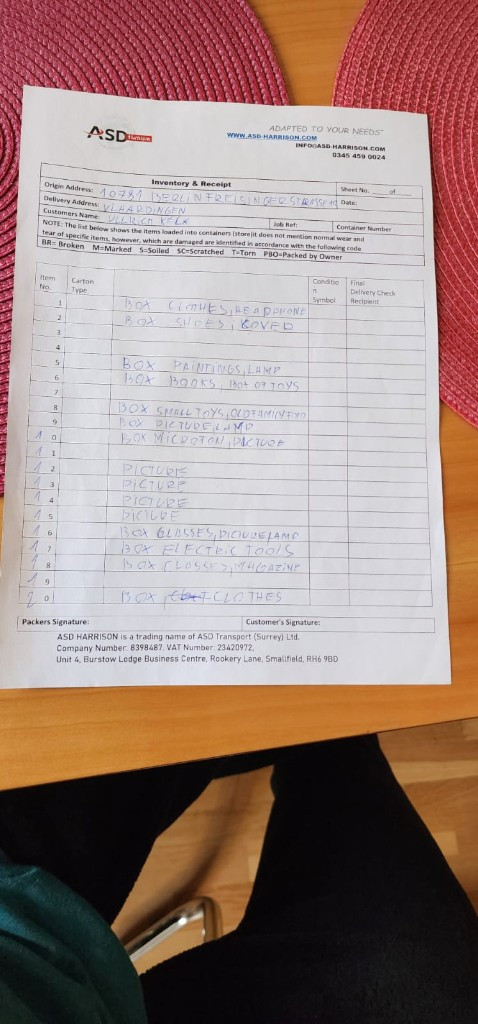 ASD HARRISON
ADAPTED TO YOUR NEEDS"
WWW.ASD-HARRISON.COM
INFO@ASD-HARRISON.COM
0345 459 0024
Inventory & Receipt
Sheet No. of
Origin Address: 10781 BERLIN FREISINGERSTRASSE 10
Date:
Delivery Address: VLAARDINGEN
Customers Name: ULLRICH
Job Ref:
Container Number
NOTE: The list below shows the items loaded into containers (store)it does not mention normal wear and
tear of specific items, however, which are damaged are identified in accordance with the following code
BR= Broken M=Marked S=Soiled SC=Scratched T=Torn PBO=Packed by Owner
Item No.
Carton Type
Conditio n Symbol
Final Delivery Check Recipient
1 BOX CLOTHES, HEADPHONE
2 BOX SHOES,
3
4
5 BOX PAINTINGS, LAMP
6 BOX BOOKS, BOX OF TOYS
7
8 BOX SMALL TOYS,
9 BOX PICTURE, LAMP
10 BOX PICTURE
11
12 PICTURE
13 PICTURE
14 PICTURE
15 PICTURE
16 BOX GLASSES, PICTURE, LAMP
17 BOX ELECTRIC TOOLS
18 BOX GLASSES, MAGAZINE
19
20 BOX, CLOTHES
Packers Signature:
Customer's Signature:
ASD HARRISON is a trading name of ASD Transport (Surrey) Ltd.
Company Number: 8398487, VAT Number: 23420972,
Unit 4, Burstow Lodge Business Centre, Rookery Lane, Smallfield, RH6 9BD